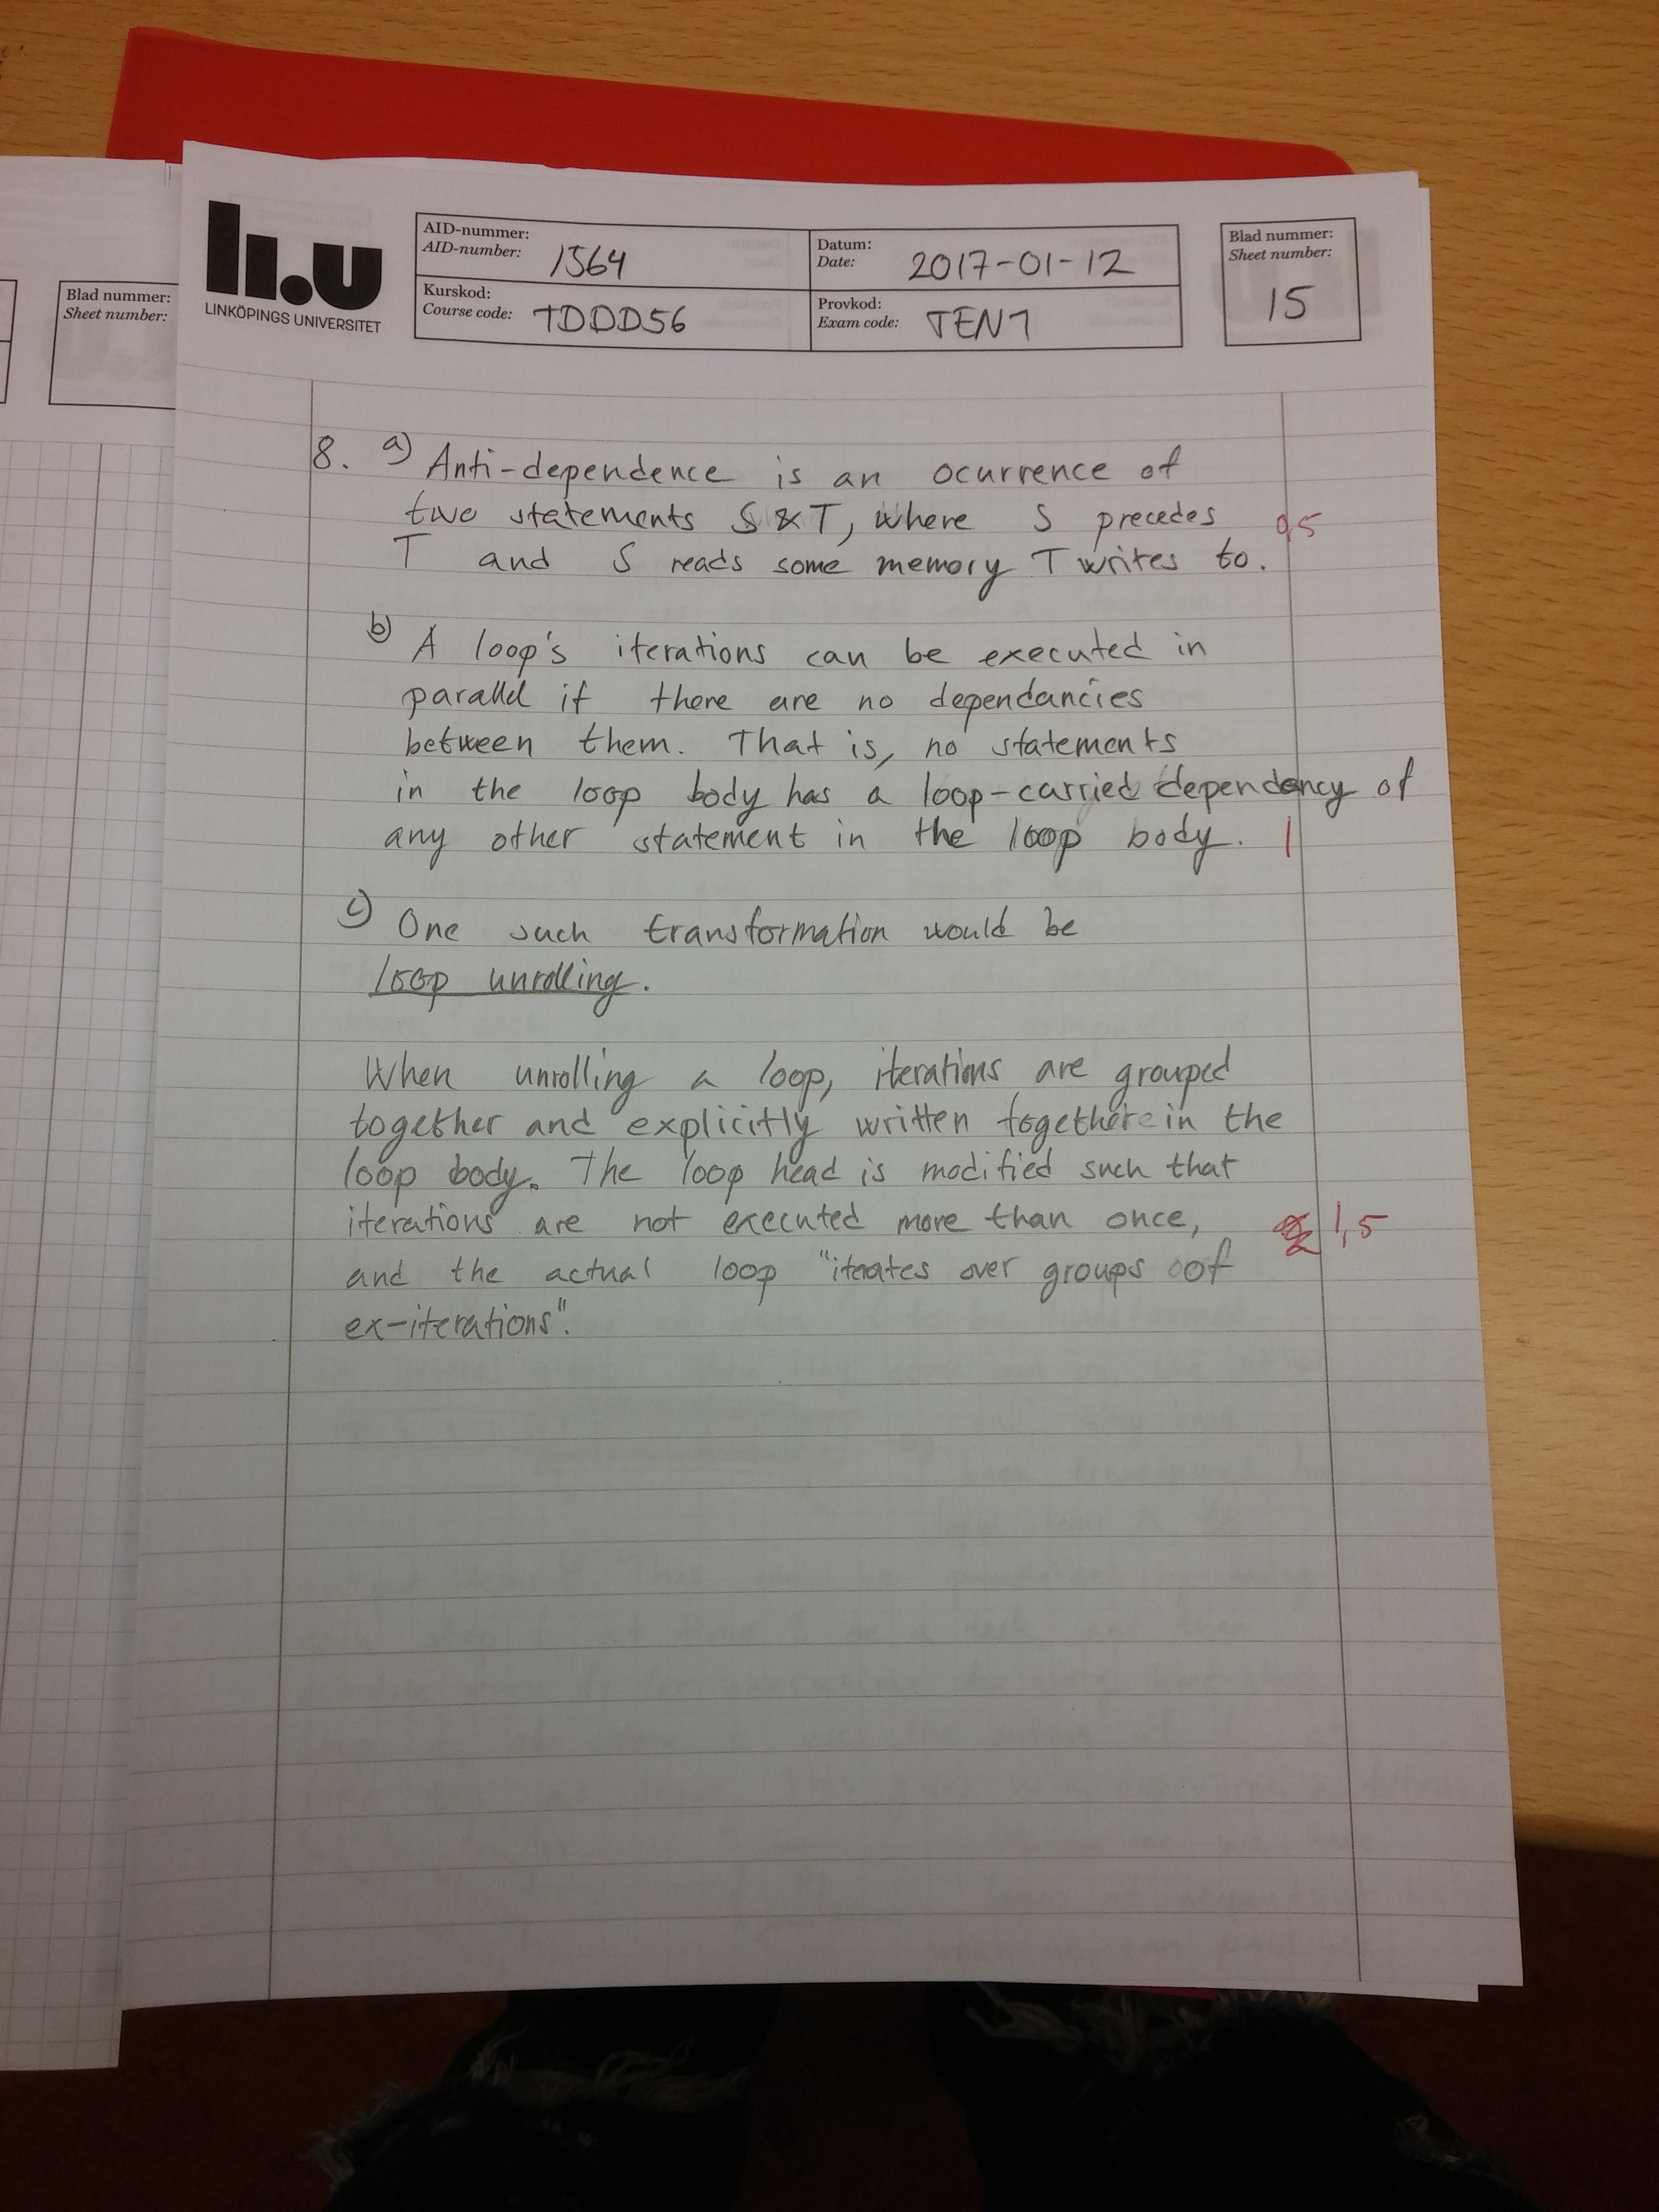 Blad nummer:
Sheet number:
li.u
LINKÖPINGS UNIVERSITET
AID-nummer:
AID-number: 1564
Datum:
Date: 2017-01-12
Kurskod:
Course code: TDDD56
Provkod:
Exam code: TEN1
Blad nummer:
Sheet number:
15
8. a) Anti-dependence is an ocurrence of
two statements S & T, where S precedes 0,5
T and S reads some memory T writes to.
b) A loop's iterations can be executed in
parallel if there are no dependancies
between them. That is, no statements
in the loop body has a loop-carried dependency of
any other statement in the loop body. 1
c) One such transformation would be
loop unrolling.
When unrolling a loop, iterations are grouped
together and explicitly written together in the
loop body. The loop head is modified such that
iterations are not executed more than once, 1,5
and the actual loop "iterates over groups of
ex-iterations".